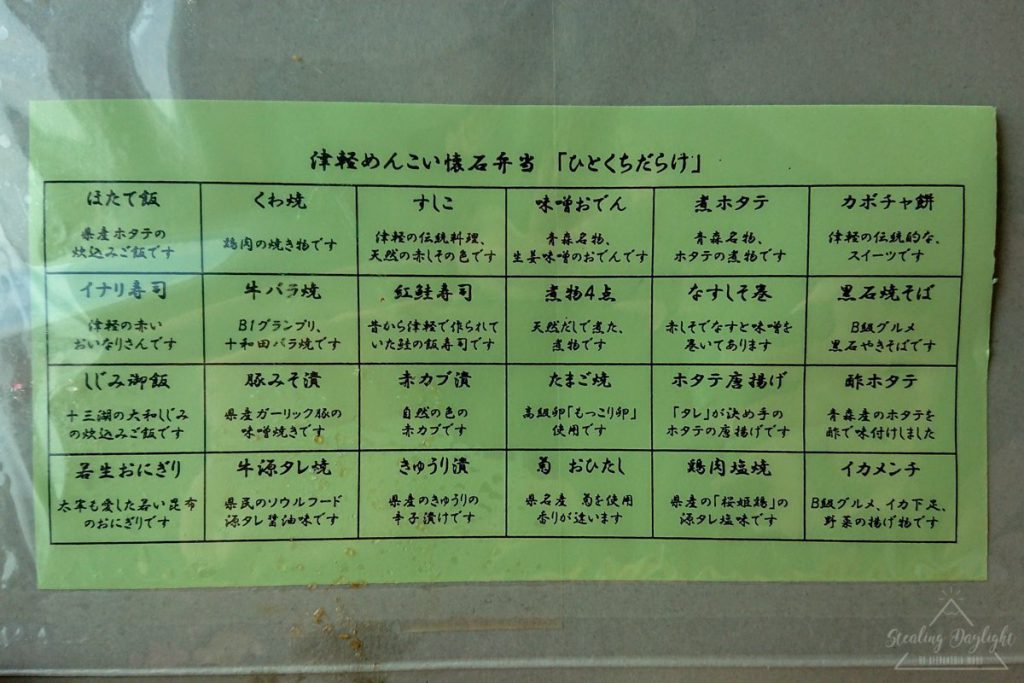 津軽めんこい懐石弁当 「ひとくちだらけ」
ほたて飯
県産ホタテの
炊込みご飯です
くわ焼
鶏肉の焼き物です
すしこ
津軽の伝統料理、
天然の赤しその色です
味噌おでん
青森名物、
生姜味噌のおでんです
煮ホタテ
青森名物、
ホタテの煮物です
カボチャ餅
津軽の伝統的な、
スイーツです
イナリ寿司
津軽の赤い
おいなりさんです
牛バラ焼
B1グランプリ、
十和田バラ焼です
紅鮭寿司
昔から津軽で作られて
いた鮭の飯寿司です
煮物4点
天然だしで煮た、
煮物です
なすしそ巻
赤しそでなすと味噌を
巻いてあります
黒石焼そば
B級グルメ
黒石やきそばです
しじみ御飯
十三湖の大和しじみ
の炊込みご飯です
豚みそ漬
県産ガーリック豚の
味噌焼きです
赤カブ漬
自然の色の
赤カブです
たまご焼
高級卵「もっこり卵」
使用です
ホタテ唐揚げ
「タレ」が決め手の
ホタテの唐揚げです
酢ホタテ
青森産のホタテを
酢で味付けしました
若生おにぎり
太宰も愛した若い昆布
のおにぎりです
牛源タレ焼
県民のソウルフード
源タレ醤油味です
きゅうり漬
県産のきゅうりの
辛子漬けです
菊 おひたし
県名産 菊を使用
香りが違います
鶏肉塩焼
県産の「桜姫鶏」の
源タレ塩味です
イカメンチ
B級グルメ、イカ下足、
野菜の揚げ物です
Stealing Daylight